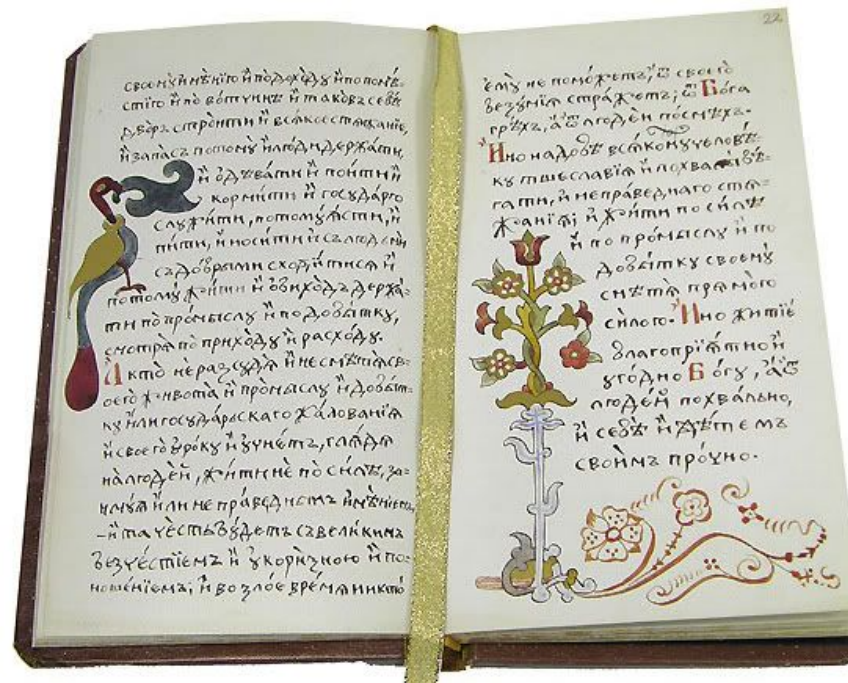 своемꙋ̀ и҆мѣ́нїю и҆ по дохо́дꙋ и҆ по помѣ́-
стїю и҆ по во́тчинѣ и҆ тако́въ себѣ̀
дво́ръ стро́ити и҆ всѧ́кое стѧжанїе,
и҆ запа́съ потомꙋ̀ и҆ люди держа́ти,
и҆ ѡ҆дѣва́ти и҆ пои́ти и҆
корми́ти и҆ госꙋда́рю
слꙋжи́ти, потомꙋ̀ ꙗ҆́сти, и҆
пи́ти, и҆ носи́ти и҆ съ людьмѝ
съ до́брыми сходи́тисѧ и҆
потомꙋ̀ жи́ти и҆ ѡ҆бихо́дъ держа́-
ти по про́мыслꙋ и҆ по добы́ткꙋ,
смотрѧ̀ по прихо́дꙋ и҆ расхо́дꙋ.
А҆ кто̀ не разсꙋдѧ̀ и҆ не смѣ́тѧ св-
оегѡ̀ живота̀ и҆ про́мыслꙋ и҆ добы́т-
кꙋ и҆лѝ госꙋда́рьскаго жа́лованїѧ
и҆ своегѡ̀ ᲂу҆ро́кꙋ и҆ ᲂу҆чне́тъ, глѧ́дѧ
на люде́й, жи́ти не по си́лѣ, за-
имꙋѧ̀ и҆лѝ не пра́веднымъ и҆мѣ́нїемъ,
– и҆ та че́сть бꙋ́детъ съ вели́кимъ
безче́стїемъ и҆ ᲂу҆кори́зною и҆ по-
ноше́нїемъ; и҆ во зло́е вре́мѧ никто̀
22
є҆мꙋ̀ не помо́жетъ; ѿ своегѡ̀
безꙋ́мїѧ стра́жетъ; ѿ Бо́га
грѣ́хъ, а҆ ѿ люде́й посмѣ́хъ.
И҆но на́добѣ всѧ́комꙋ человѣ́-
кꙋ тщесла́вїѧ и҆ похвалы̀ бѣ́-
гати, и҆ непра́веднаго стѧ-
жа́нїѧ; и҆ жи́ти по си́лѣ
и҆ по про́мыслꙋ и҆ по
добы́ткꙋ своемꙋ̀
смѣ́тѧ прѧмо́го
си́лого. И҆но житїѐ
благопрїѧ́тно и҆
ᲂу҆го́дно Бо́гꙋ, а҆ ѿ
люде́й похва́льно,
и҆ себѣ̀ и҆ дѣ́темъ
свои́мъ про́чно.